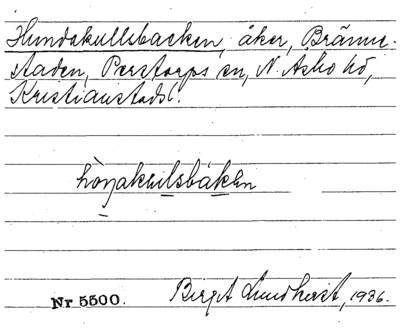 Hundakullsbacken, åker, Bränne-
staden, Perstorps sn, N. Åsbo hd,
Kristianstads l.
Nr 5500. Birgit Lundkvist, 1936.